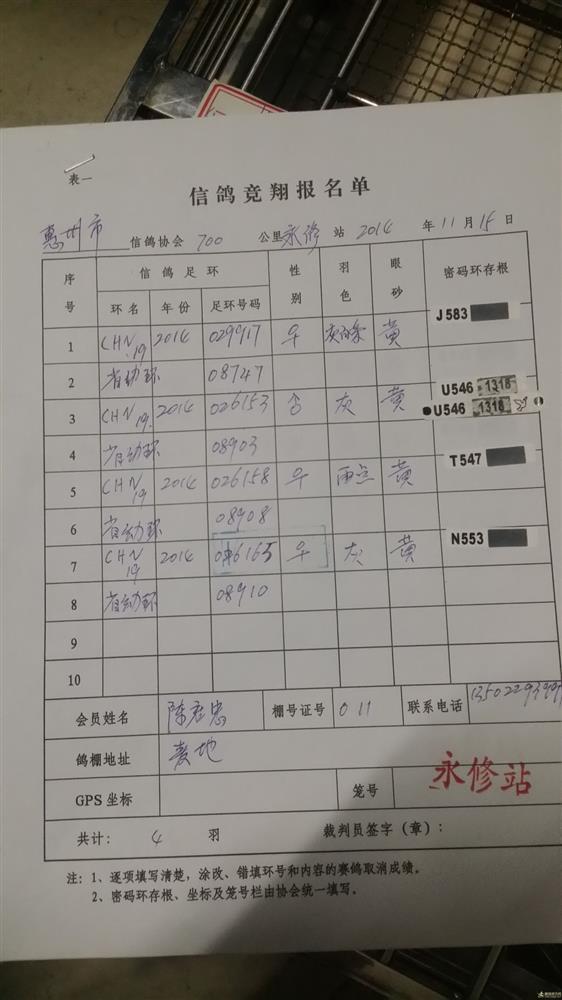 表一
信鸽竞翔报名单
惠州市 信鸽协会 700 公里 永修 站 2014 年 11 月 15 日
序号 信鸽足环 性别 羽色 眼砂 密码环存根
环名 年份 足环号码
J583
1 CHN 19 2014 029917 早 灰白条 黄
2 省动环 08747
U546 1318
3 CHN 19 2014 026153 灰 黄
U546 1318
4 省动环 08903
T547
5 CHN 19 2014 026158 早 雨点 黄
6 省动环 08908
N553
7 CHN 19 2014 026165 早 灰 黄
8 省动环 08910
9
10
会员姓名 棚号证号 011 联系电话
鸽棚地址 麦地
GPS 坐标 笼号 永修站
共计: 4 羽 裁判员签字(章):
注:1、逐项填写清楚,涂改、错填环号和内容的赛鸽取消成绩。
2、密码环存根、坐标及笼号栏由协会统一填写。